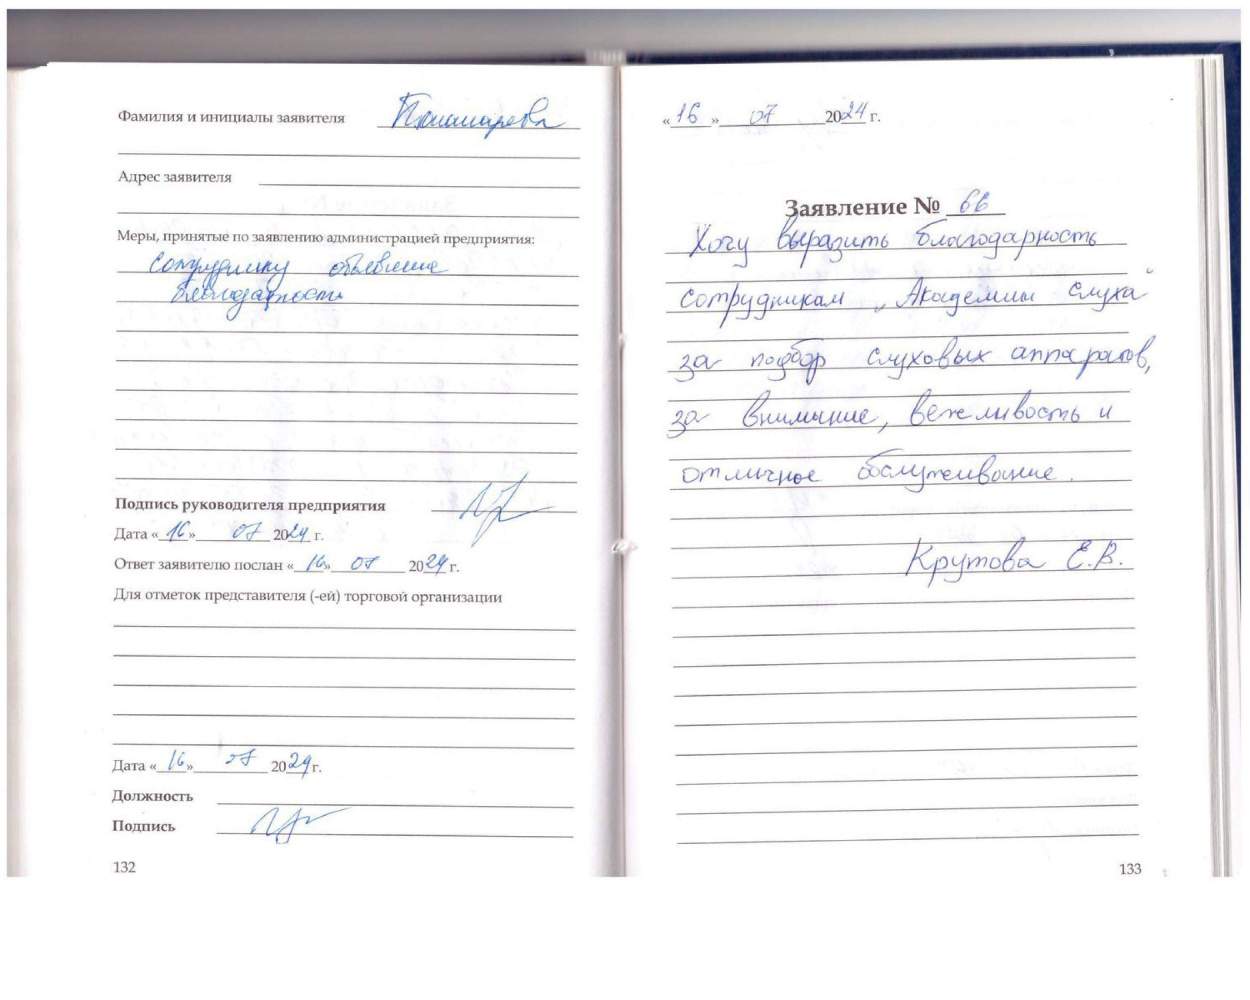 Фамилия и инициалы заявителя Пономарева
Адрес заявителя
Меры, принятые по заявлению администрацией предприятия:
сотруднику объявлена
благодарность
Подпись руководителя предприятия
Дата «16» 07 2024 г.
Ответ заявителю послан «16» 07 2024 г.
Для отметок представителя (-ей) торговой организации
Дата «16» 07 2024 г.
Должность
Подпись
132
«16» 07 2024 г.
Заявление № 66
Хочу выразить благодарность
сотрудникам „Академии слуха"
за подбор слуховых аппаратов,
за внимание, вежливость и
отличное обслуживание.
Крутова Е.В.
133